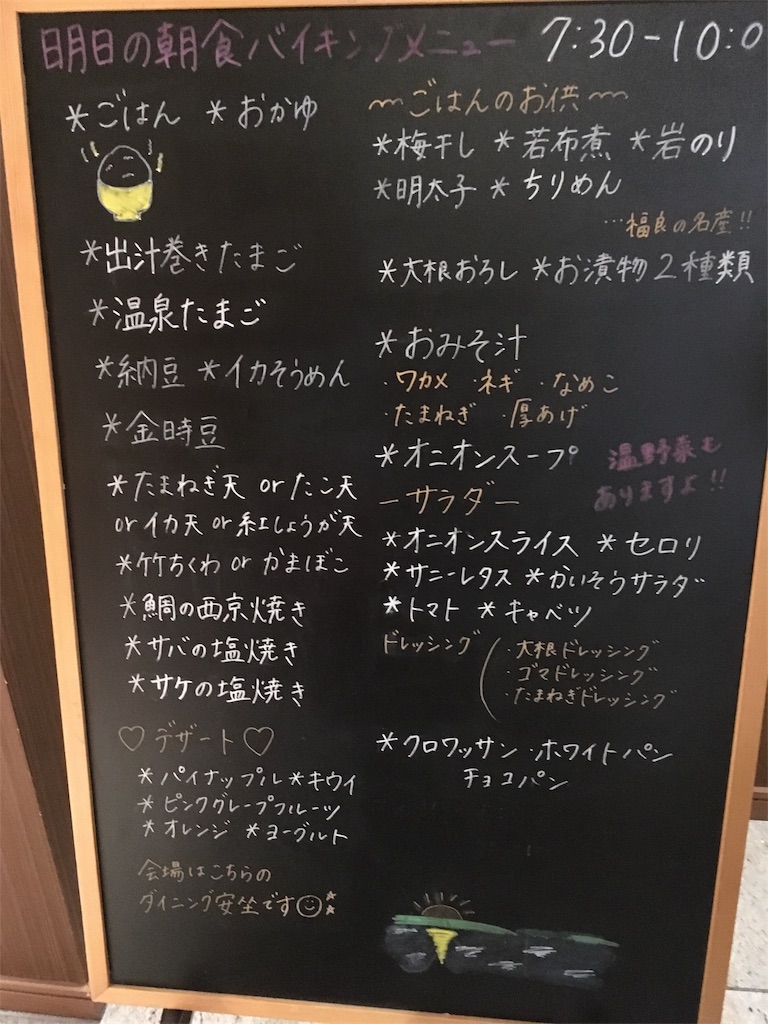 明日の朝食バイキングメニュー 7:30-10:0
*ごはん *おかゆ
*出汁巻きたまご
*温泉たまご
*納豆 *イカそうめん
*金時豆
*たまねぎ天 or たこ天
or イカ天 or 紅しょうが天
*竹ちくわ or かまぼこ
*鯛の西京焼き
*サバの塩焼き
*サケの塩焼き
♡デザート♡
*パイナップル *キウイ
*ピンクグレープフルーツ
*オレンジ *ヨーグルト
会場はこちらの
ダイニング安坐です☺
〜ごはんのお供〜
*梅干し *若布煮 *岩のり
*明太子 *ちりめん
…福良の名産!!
*大根おろし *お漬物2種類
*おみそ汁
・ワカメ ・ネギ ・なめこ
・たまねぎ ・厚あげ
*オニオンスープ
温野菜も
ありますよ!!
ーサラダー
*オニオンスライス *セロリ
*サニーレタス *かいそうサラダ
*トマト *キャベツ
ドレッシング
・大根ドレッシング
・ゴマドレッシング
・たまねぎドレッシング
*クロワッサン・ホワイトパン
チョコパン